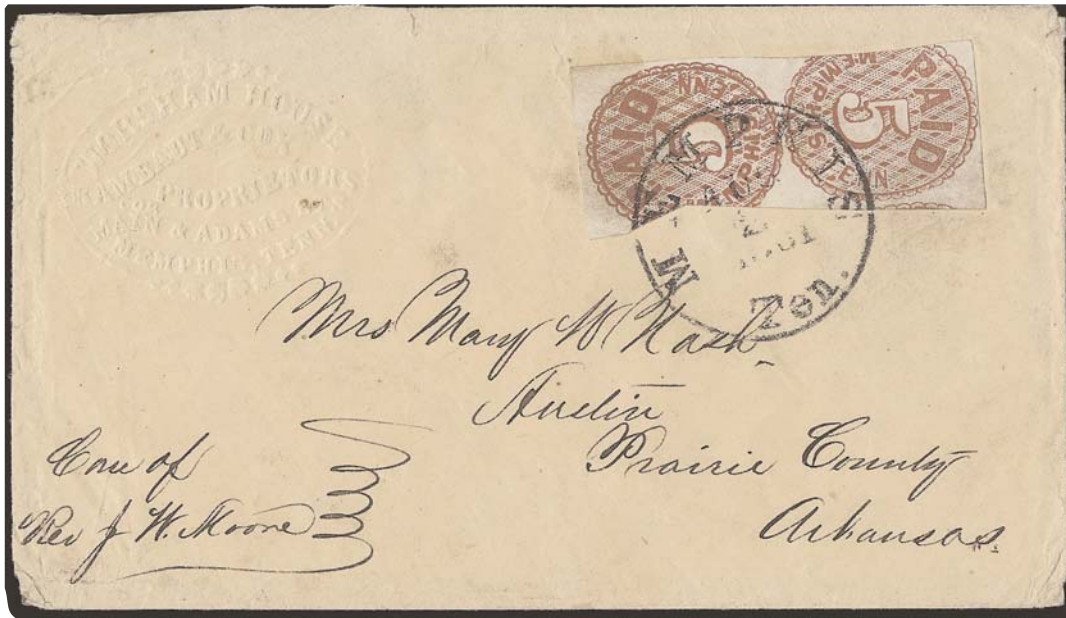 HOUSE
PROPRIETORS
MAIN & ADAMS
MEMPHIS, TENN
PAID
5
MEMPHIS
TENN
PAID
5
MEMPHIS
TENN
MEMPHIS
Ten.
Mrs Mary W Nash
Austin
Prairie County
Arkansas.
Care of
Rev J W. Moore